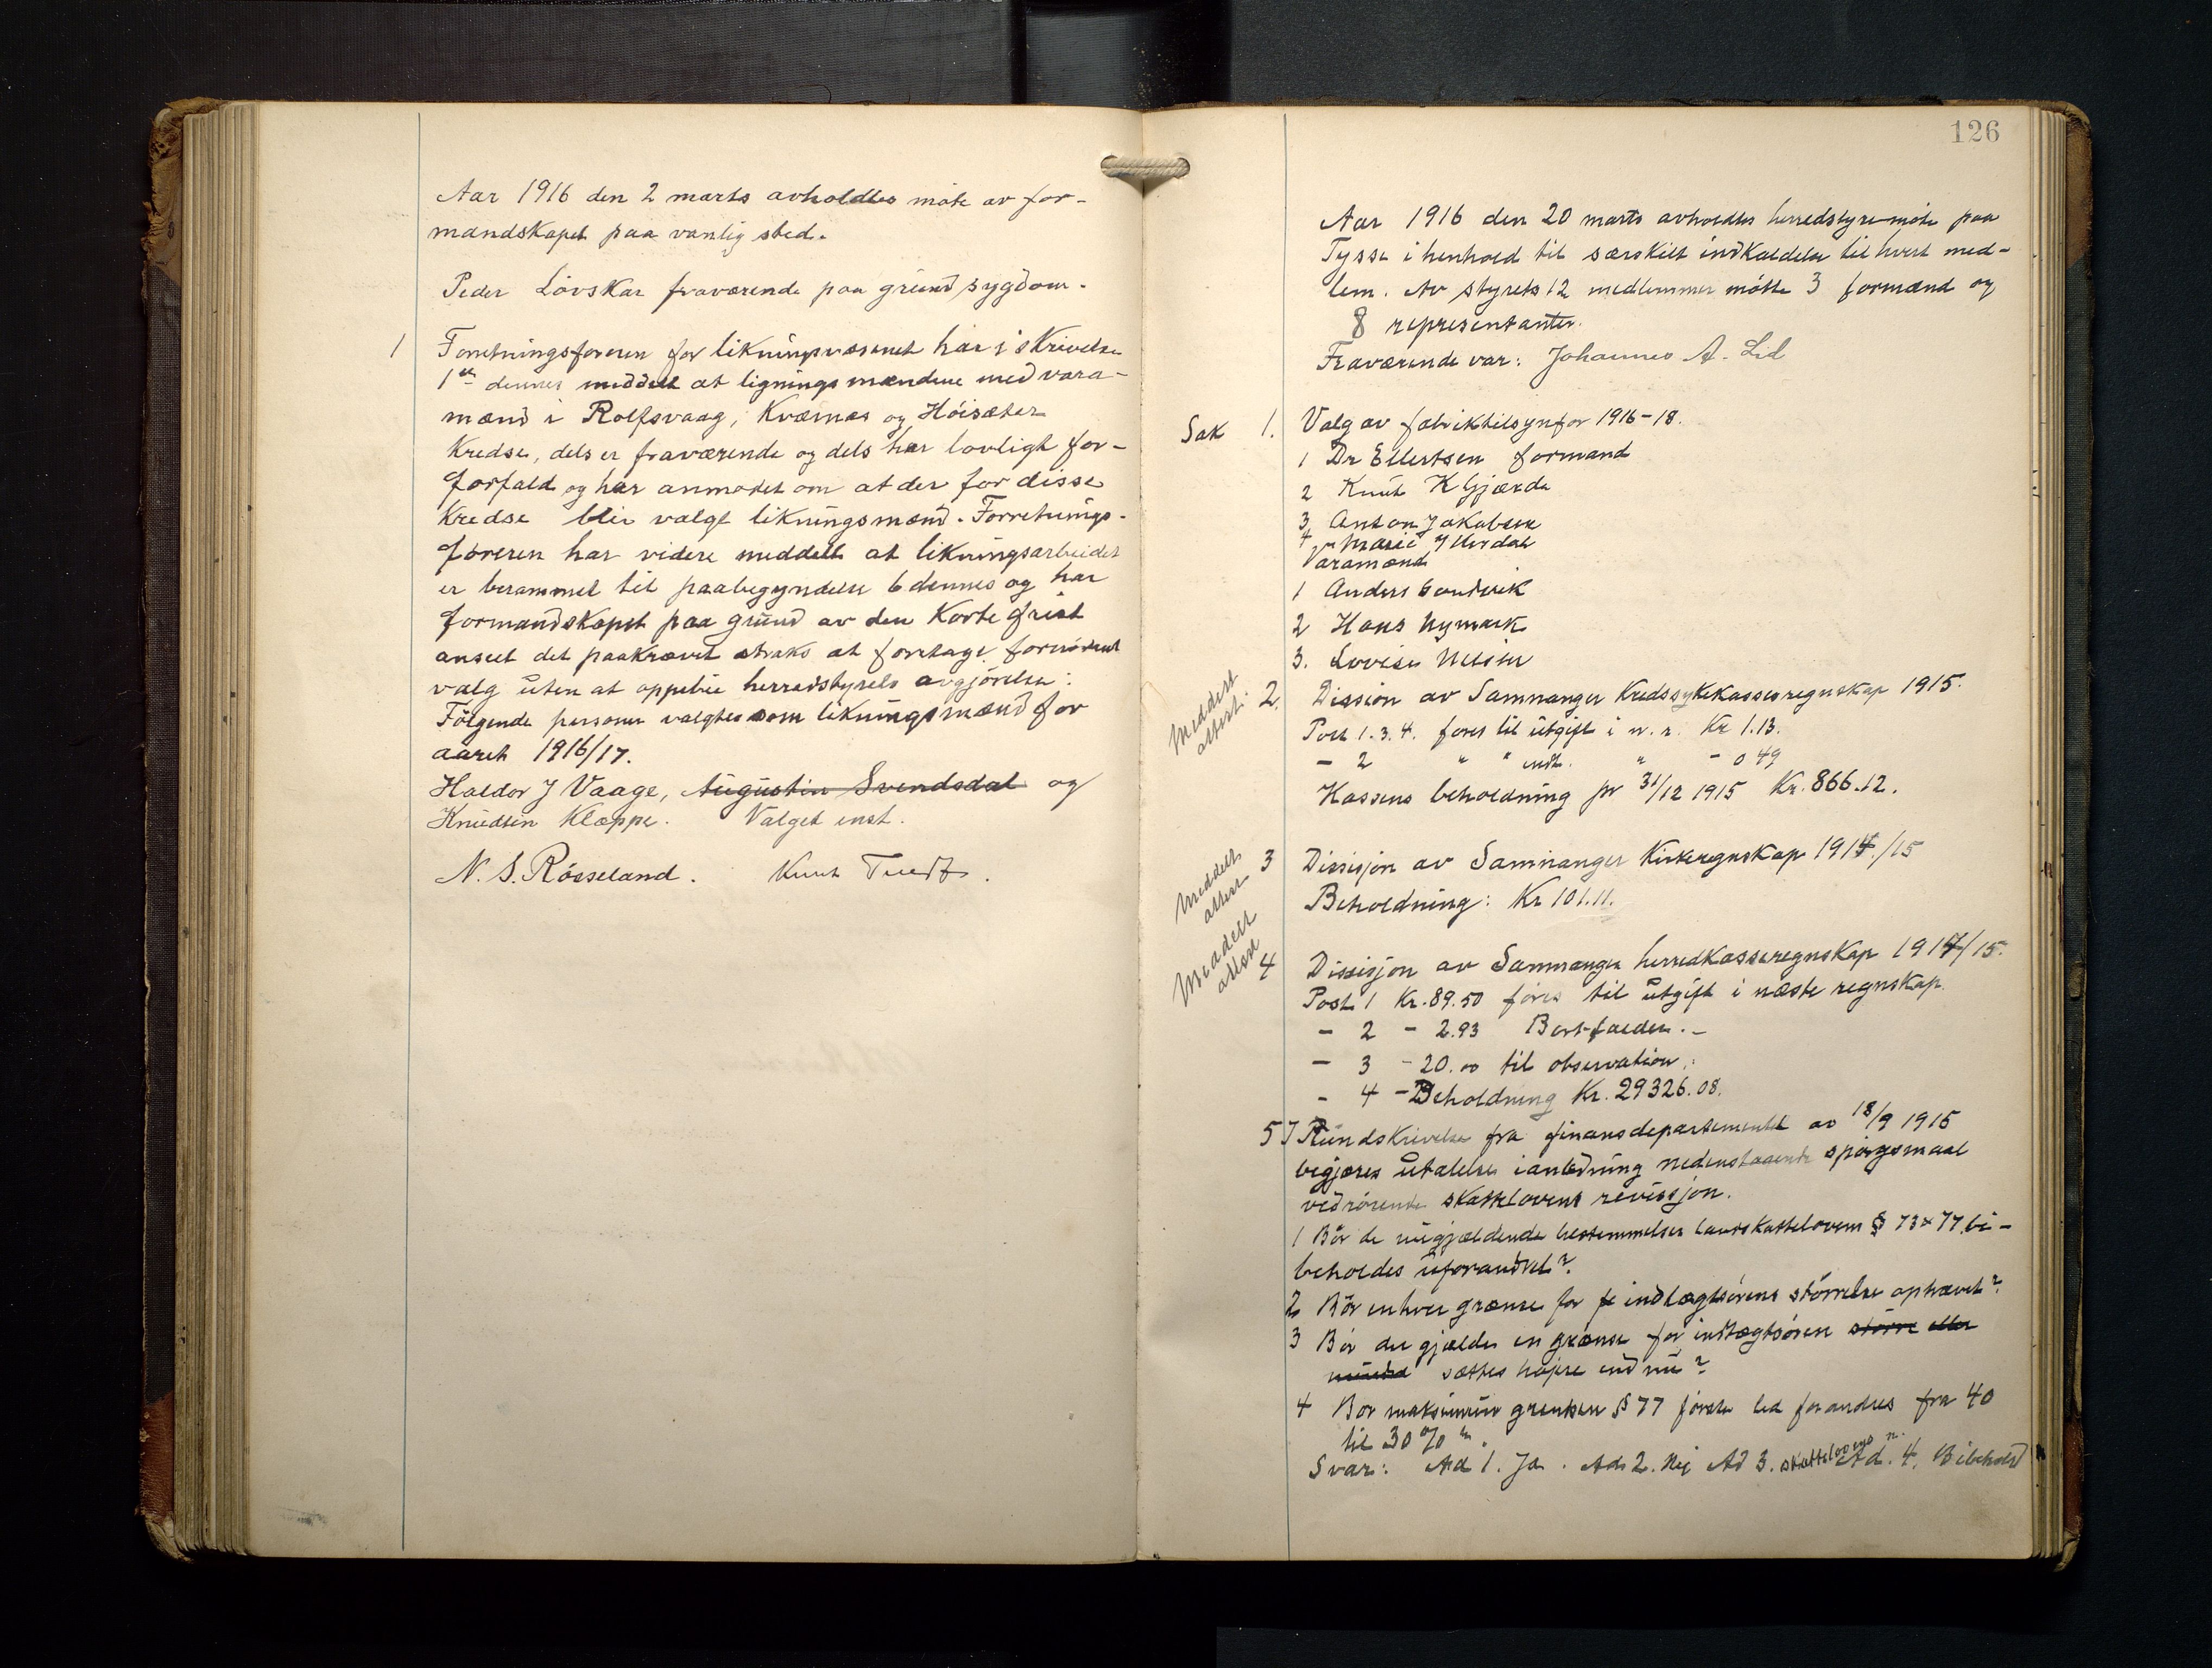 Aar 1916 den 2 marts avholdtes møte av for-
mandskapet paa vanlig sted.
Peder Løvskar fraværende paa grund sygdom.
1 Forretningsføreren for likningsvæsenet har i skrivelse
1ste dennes meddelt at ligningsmændene med vara-
mænd i Rolfsvaag, Kværnæs og Höisæter
Kredse, dels er fraværende og dels har lovligt for-
forfald og har anmodet om at der for disse
Kredse blir valgt likningsmænd. Forretnings-
føreren har videre meddelt at likningsarbeidet
er berammet til paabegyndelse 6 dennes og har
formandskapet paa grund av den korte frist
anseet det paakrævet straks at foretage fornødent
valg uten at oppebie herredstyrets avgjørelse:
Følgende personer valgtes som likningsmænd for
aaret 1916/17.
Haldor J Vaage, Augustin Svendsdal og
Knudsen Klæppe. Valget enst.
N. S. Røsseland. Knut Tvedt.
126
Aar 1916 den 20 marts avholdtes herredstyremøte paa
Tysse i henhold til særskilt indkaldelse til hvert med-
lem. Av styrets 12 medlemmer møtte 3 formænd og
8 representanter.
Fraværende var: Johannes A. Lid
Sak 1. Valg av fabriktilsyn for 1916-18.
1 Dr Ellertsen formand
2 Knut K Gjærde
3 Anton Jakobsen
4 Marie J Herdal
Varamænd
1 Anders Sandvik
2 Hans Nymark
3. Lovise Nilsen
Meddelt
attest.
2. Dission av Samnanger Kredssykekasses regnskap 1915.
Post 1.3.4. føres til utgift i n. r. Kr 1.13.
- 2 " " indt. " - 0 49
Kassens beholdning pr 31/12 1915 Kr. 866.12.
Meddelt
attest
3 Dissisjon av Samnanger Kirkeregnskap 1914/15
Beholdning: Kr 101.11.
Meddelt
attest
4 Dissisjon av Samnanger herredkasseregnskap 1914/15.
Post 1 Kr. 89.50 føres til utgift i næste regnskap.
- 2 - 2.93 Bortfalder. -
- 3 - 20.00 til observation.
- 4 - Beholdning Kr. 29326.08.
5 I Rundskrivelse fra finansdepartementet av 18/9 1915
begjæres utalelse i anledning nedenstaaende spørgsmaal
vedrørende skattelovens revissjon.
1 Bør de nugjældende bestemmelser landskattelovens § 73 & 77 bi-
beholdes uforandret?
2 Bør enhver grænse for indtægtsørens størrelse ophævet?
3 Bør der gjælder en grænse for indtægtsøren større eller
mindre sættes højre end nu?
4 Bør maksimum grensen § 77 første led forandres fra 40
til 30 %
Svar: Ad 1. Ja. Ad 2. Nej Ad 3. skattelovens n. Ad. 4. Bibehold